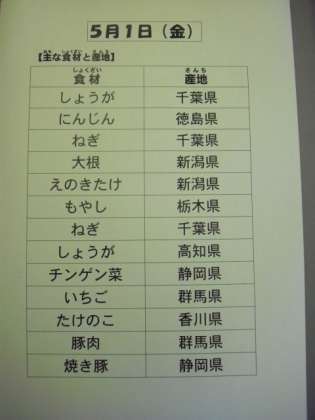 5月1日（金）
【主な食材と産地】
食材 産地
しょうが 千葉県
にんじん 徳島県
ねぎ 千葉県
大根 新潟県
えのきたけ 新潟県
もやし 栃木県
ねぎ 千葉県
しょうが 高知県
チンゲン菜 静岡県
いちご 群馬県
たけのこ 香川県
豚肉 群馬県
焼き豚 静岡県